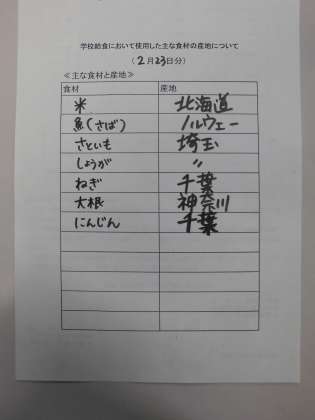 学校給食において使用した主な食材の産地について
(2月23日分)
≪主な食材と産地≫
食材 産地
米 北海道
魚(さば) ノルウェー
さといも 埼玉
しょうが 〃
ねぎ 千葉
大根 神奈川
にんじん 千葉